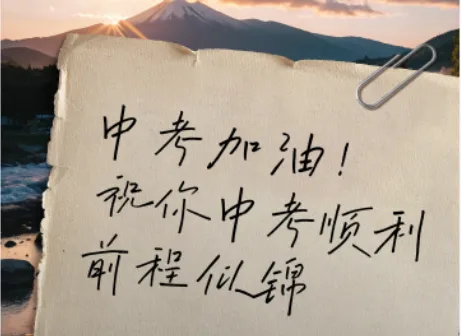 中考加油！
祝你中考顺利
前程似锦